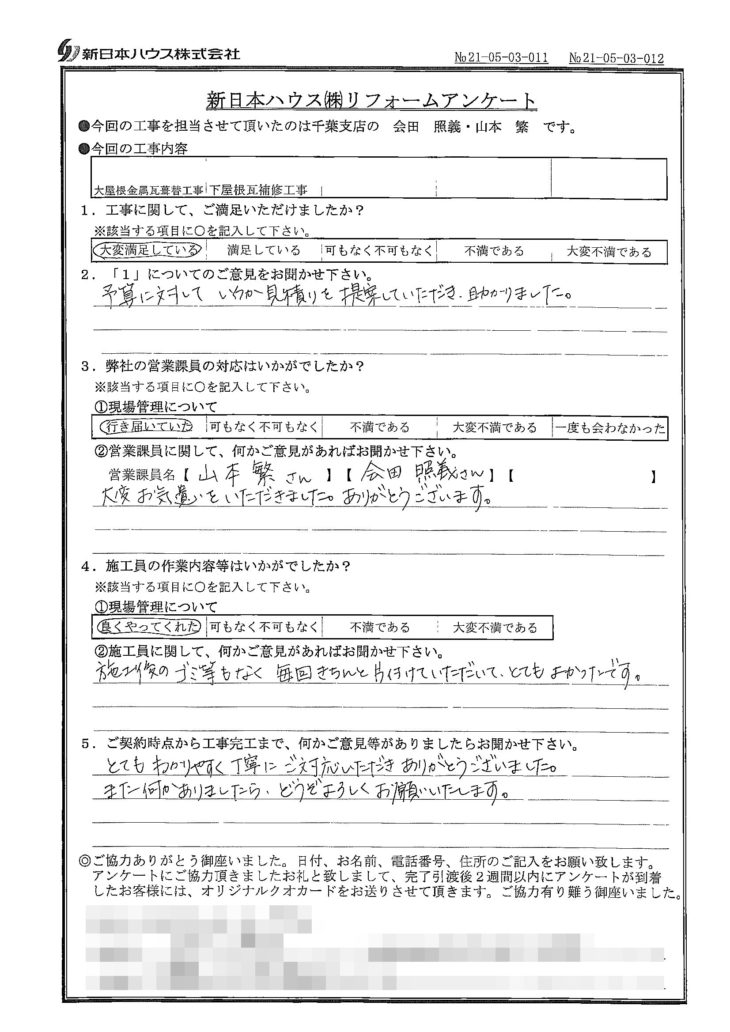 新日本ハウス株式会社
№21-05-03-011 №21-05-03-012
新日本ハウス㈱リフォームアンケート
●今回の工事を担当させて頂いたのは千葉支店の 会田 照義・山本 繁 です。
●今回の工事内容
大屋根金属瓦葺替工事 下屋根瓦補修工事
1．工事に関して、ご満足いただけましたか？
※該当する項目に○を記入して下さい。
大変満足している 満足している 可もなく不可もなく 不満である 大変不満である
2．「1」についてのご意見をお聞かせ下さい。
予算に対して いくつか見積りを提案していただき、助かりました。
3．弊社の営業課員の対応はいかがでしたか？
※該当する項目に○を記入して下さい。
①現場管理について
行き届いていた 可もなく不可もなく 不満である 大変不満である 一度も会わなかった
②営業課員に関して、何かご意見があればお聞かせ下さい。
営業課員名【 山本繁さん 】【 会田照義さん 】【 】
大変お気遣いをいただきました。ありがとうございます。
4．施工員の作業内容等はいかがでしたか？
※該当する項目に○を記入して下さい。
①現場管理について
良くやってくれた 可もなく不可もなく 不満である 大変不満である
②施工員に関して、何かご意見があればお聞かせ下さい。
施工後のゴミ等もなく 毎回きちんと片付けていただいて、とてもよかったです。
5．ご契約時点から工事完工まで、何かご意見等がありましたらお聞かせ下さい。
とてもわかりやすく丁寧にご対応いただきありがとうございました。
また何かありましたら、どうぞよろしくお願いいたします。
◎ご協力ありがとう御座いました。日付、お名前、電話番号、住所のご記入をお願い致します。
アンケートにご協力頂きましたお礼と致しまして、完了引渡後2週間以内にアンケートが到着
したお客様には、オリジナルクオカードをお送りさせて頂きます。ご協力有り難う御座いました。